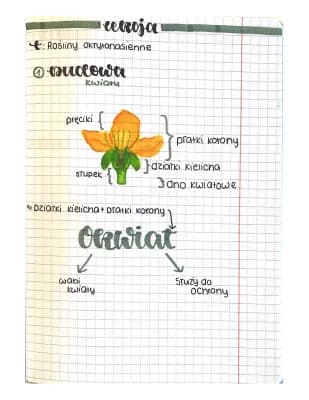 lekcja
t: Rośliny okrytonasienne
① Budowa
kwiatu
pręciki
płatki korony
działki kielicha
słupek
dno kwiatowe
Działki kielicha + płatki korony
Okwiat
wabi
kwiaty
Służy do
ochrony